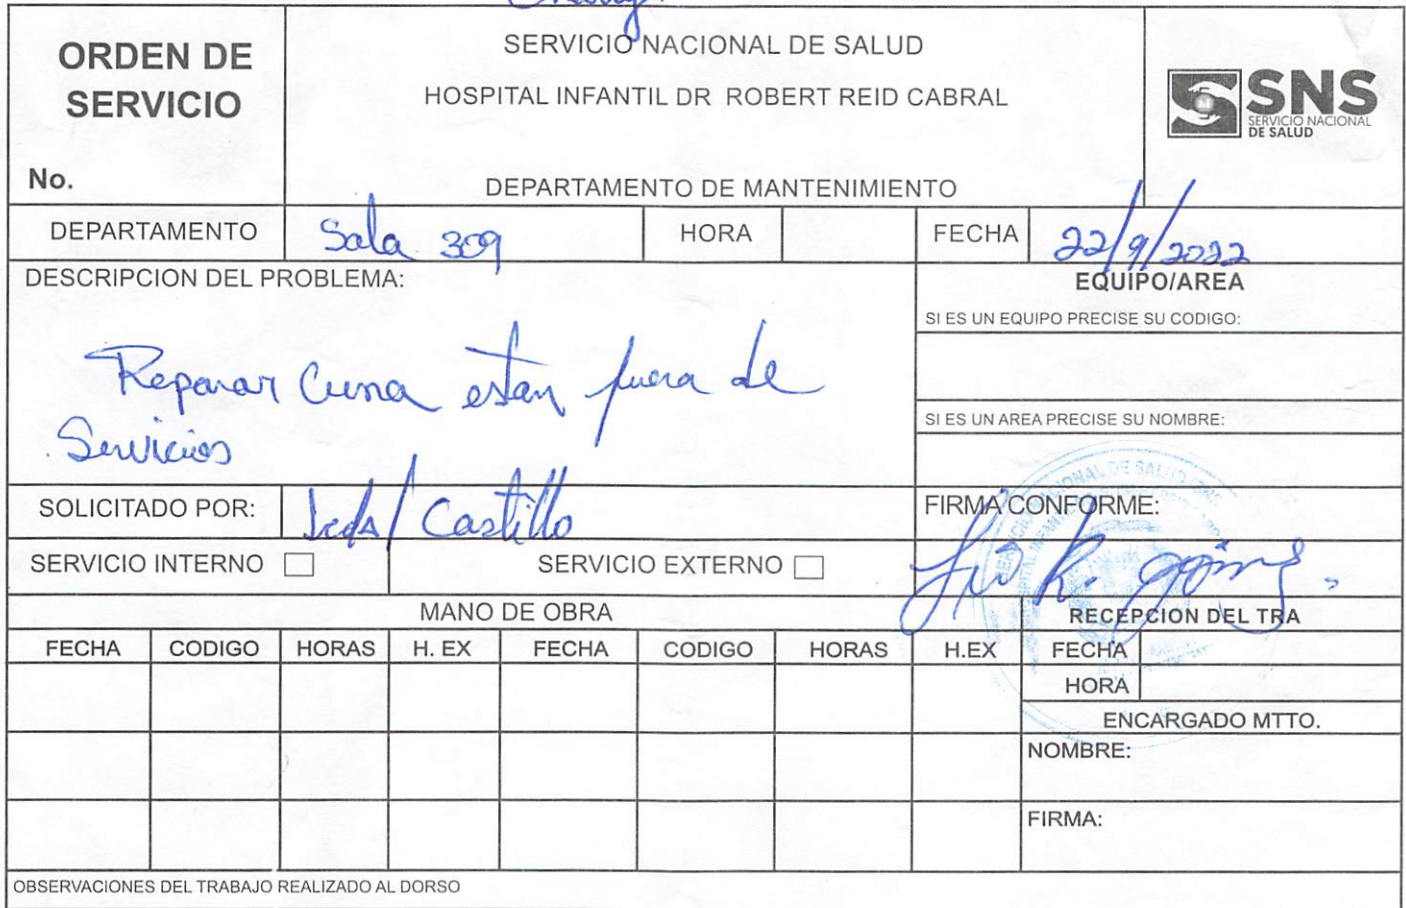 ORDEN DE
SERVICIO
No.
SERVICIO NACIONAL DE SALUD
HOSPITAL INFANTIL DR ROBERT REID CABRAL
DEPARTAMENTO DE MANTENIMIENTO
SNS
SERVICIO NACIONAL
DE SALUD
DEPARTAMENTO Sala 309 HORA FECHA 22/9/2022
DESCRIPCION DEL PROBLEMA:
Reparar Cuna estan fuera de
Servicios
EQUIPO/AREA
SI ES UN EQUIPO PRECISE SU CODIGO:
SI ES UN AREA PRECISE SU NOMBRE:
SOLICITADO POR: Castillo
FIRMA CONFORME:
SERVICIO INTERNO SERVICIO EXTERNO
MANO DE OBRA
RECEPCION DEL TRA
FECHA CODIGO HORAS H. EX FECHA CODIGO HORAS H.EX FECHA
HORA
ENCARGADO MTTO.
NOMBRE:
FIRMA:
OBSERVACIONES DEL TRABAJO REALIZADO AL DORSO